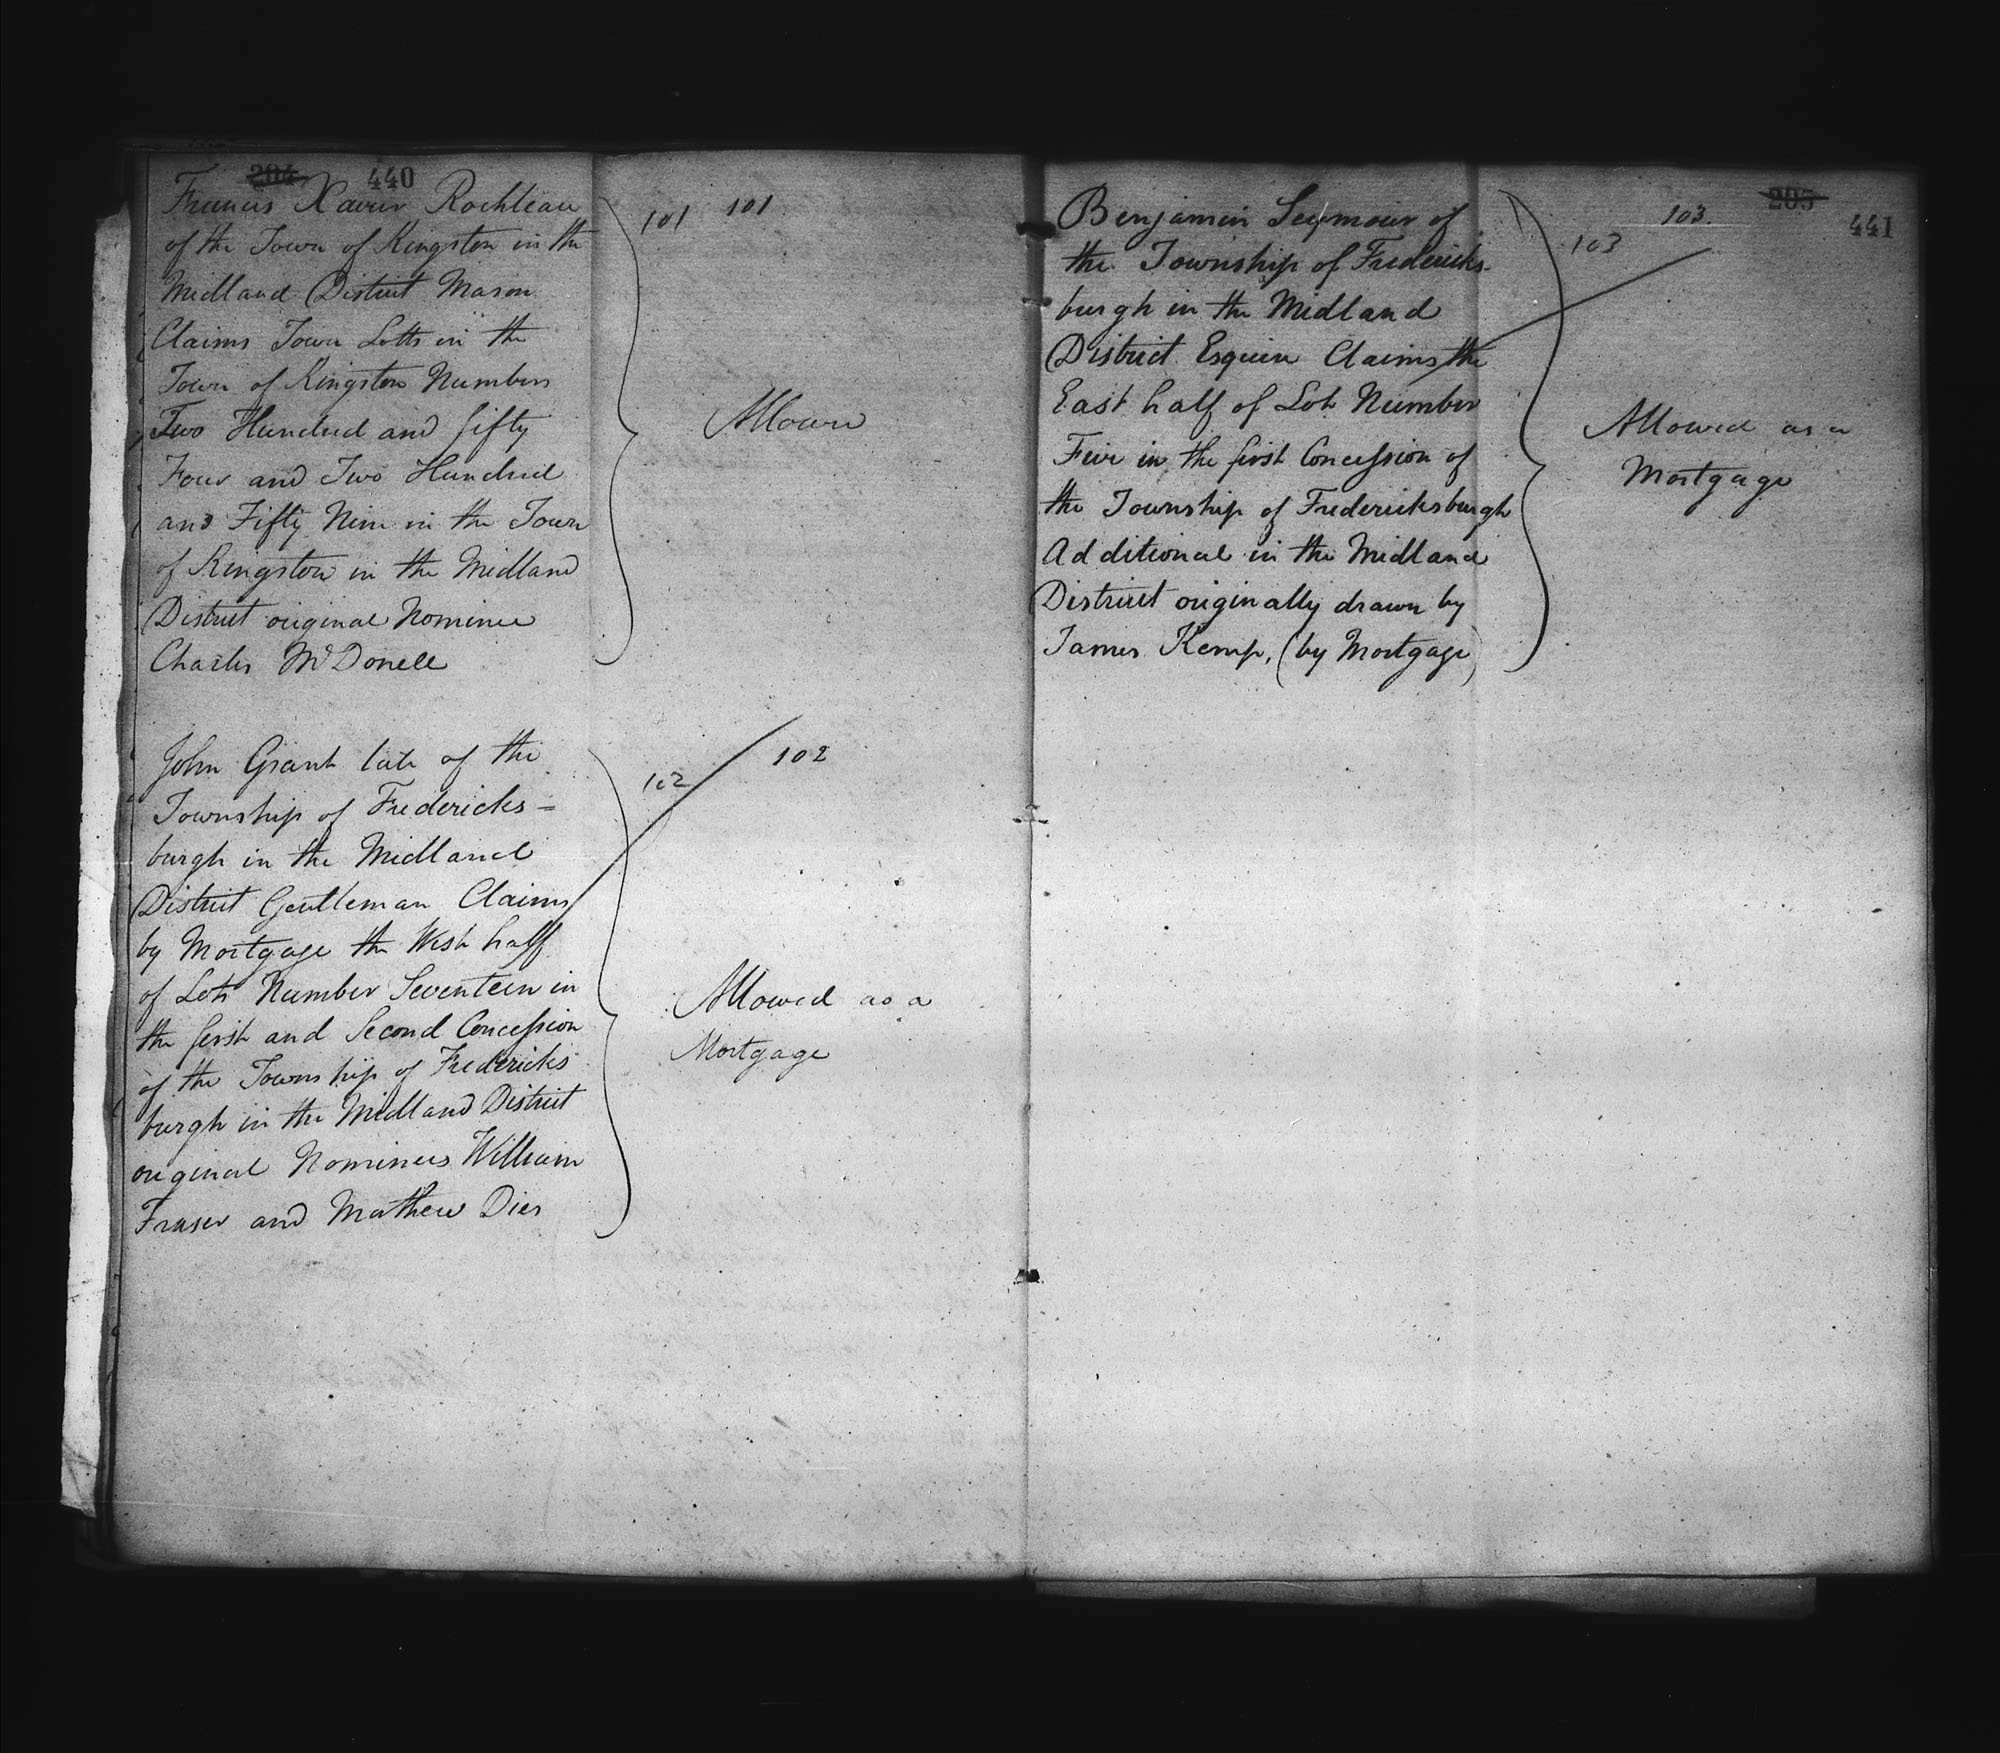 204 440
Francis Xavier Rochleau
of the Town of Kingston in the
Midland District Mason
Claims Town Lotts in the
Town of Kingston Numbers
Two Hundred and fifty
Four and Two Hundred
and Fifty Nine in the Town
of Kingston in the Midland
District original Nominee
Charles McDonell
101 101
Allowd
John Grant late of the
Township of Fredericks=
burgh in the Midland
District Gentleman Claims
by Mortgage the West half
of Lot Number Seventeen in
the first and Second Concession
of the Township of Fredericks
burgh in the Midland District
original Nominees William
Fraser and Mathew Dies
102 102
Allowed as a
Mortgage
205
441
Benjamin Seymour of
the Township of Fredericks-
burgh in the Midland
District Esquire Claims the
East half of Lot Number
Five in the first Concession of
the Township of Fredericksburgh
Additional in the Midland
District originally drawn by
James Kemp, (by Mortgage)
103 103.
Allowed as a
Mortgage